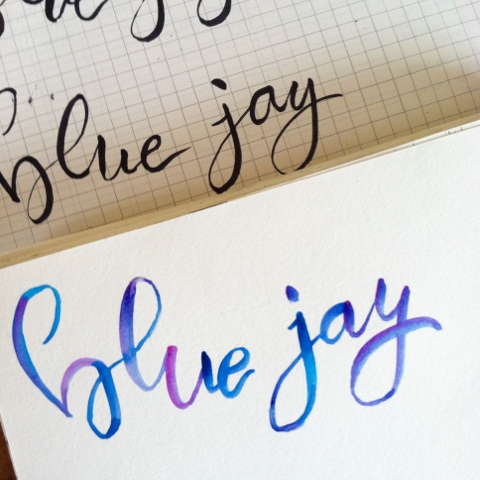 blue jay
blue jay